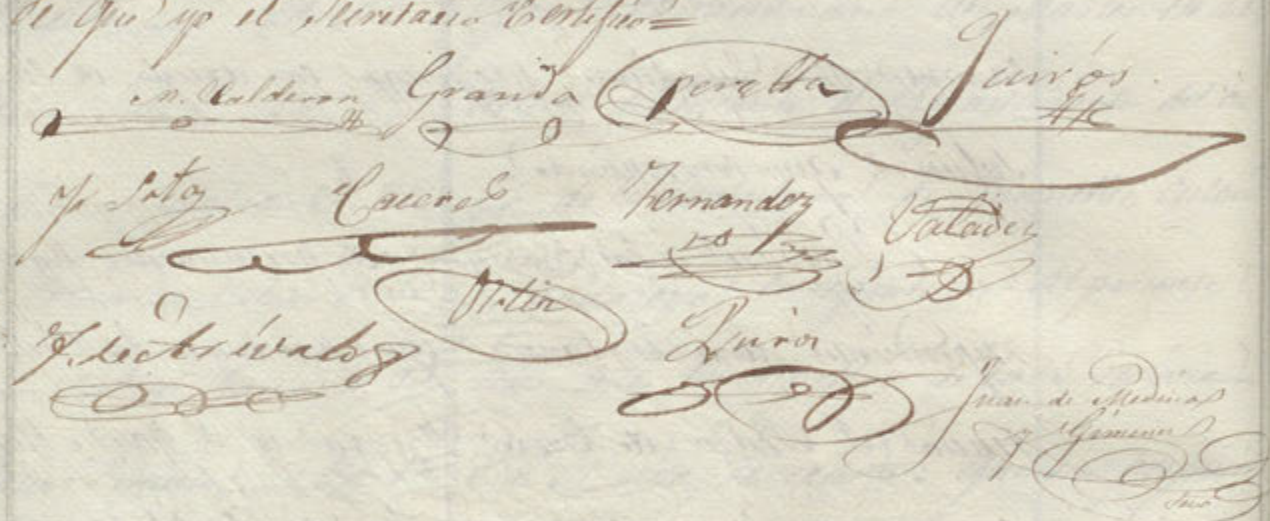 de que yo el Secretario Certifico=
M. Calderon Granda Peralta Quirós
Soto Caceres Fernandez Valades
Ortin
Quiros
Juan de Medina
y Gimenez
Srio